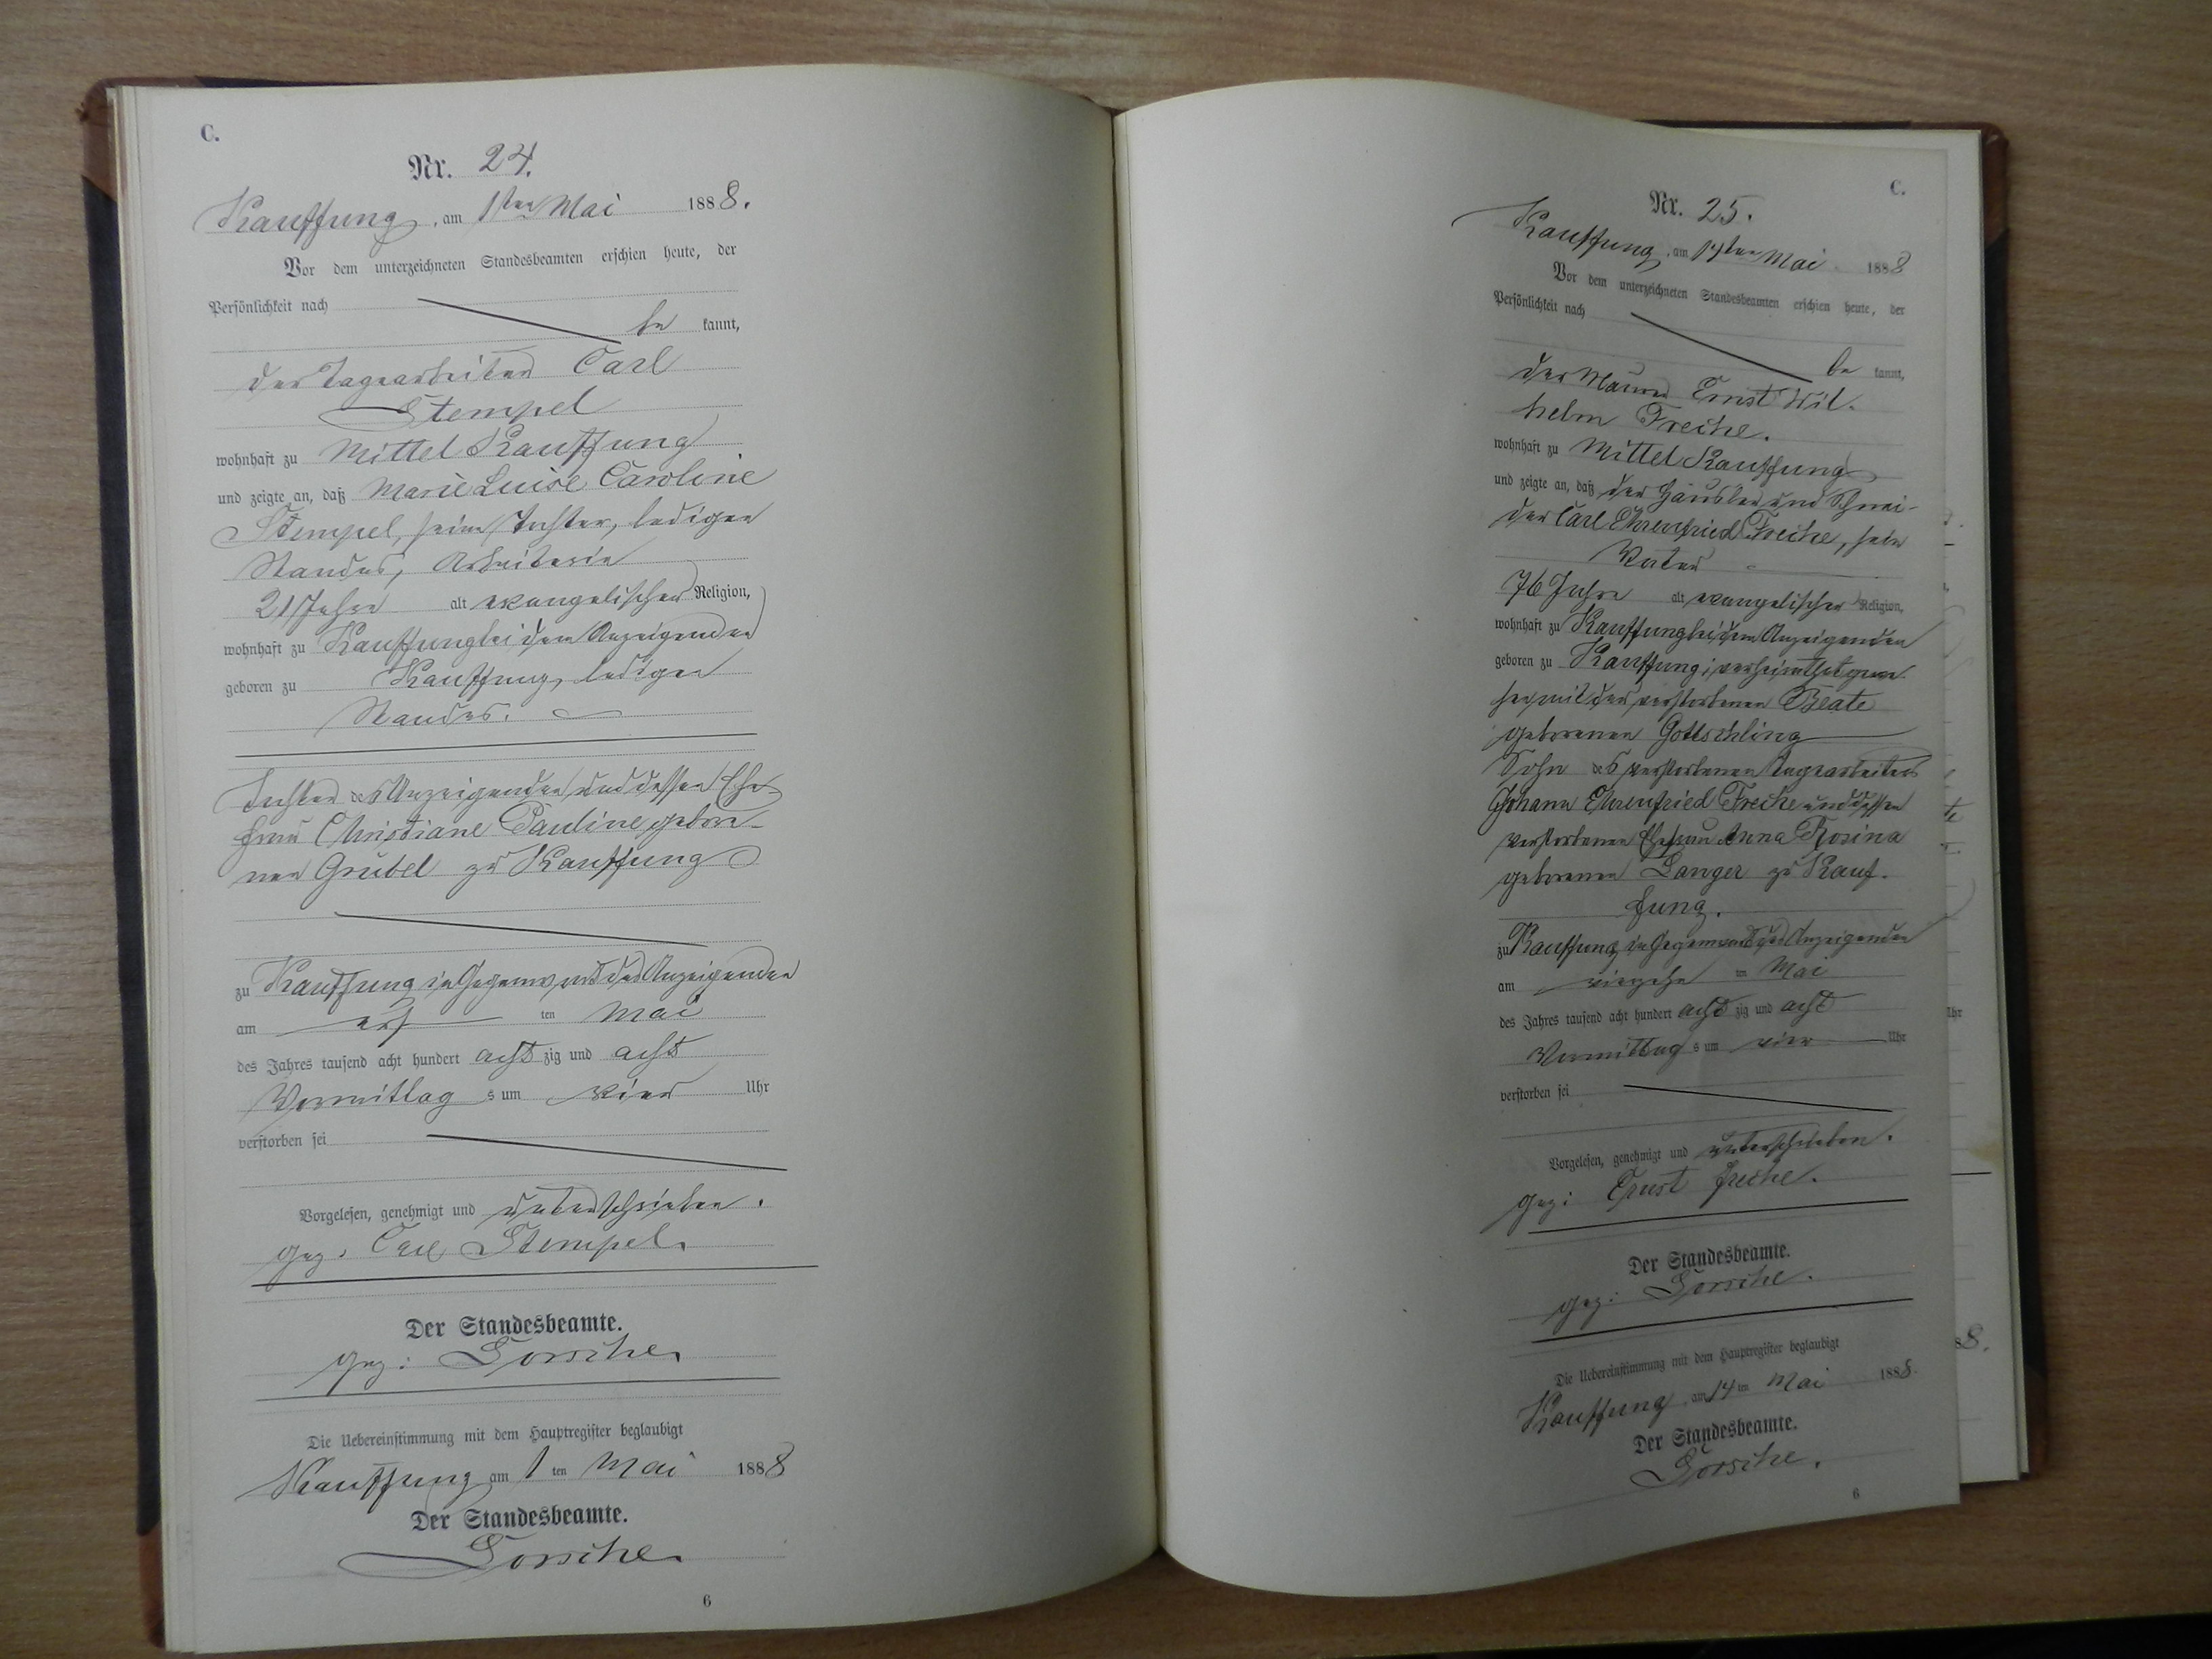 C.
Nr. 24.
Kauffung, am 1ten Mai 1888.
Vor dem unterzeichneten Standesbeamten erschien heute, der
Persönlichkeit nach
be kannt,
der Tagearbeiter Carl
Stempel
wohnhaft zu Mittel Kauffung
und zeigte an, daß Marie Luise Caroline
Stempel, seine Tochter, ledigen
Standes, Arbeiterin
21 Jahre alt evangelischer Religion,
wohnhaft zu Kauffung bei dem Anzeigenden
geboren zu Kauffung, ledigen
Standes.
Tochter des Anzeigenden und dessen Ehe-
frau Christiane Pauline gebore-
nen Grübel zu Kauffung
zu Kauffung in Gegenwart des Anzeigenden
am ers ten Mai
des Jahres tausend acht hundert acht zig und acht
Vormittag s um vier Uhr
verstorben sei
Vorgelesen, genehmigt und unterschrieben.
gez: Carl Stempel.
Der Standesbeamte.
gez:
Die Uebereinstimmung mit dem Hauptregister beglaubigt
Kauffung am 1 ten Mai 1888
Der Standesbeamte.
6
C.
Nr. 25.
Kauffung, am 14ten Mai 1888
Vor dem unterzeichneten Standesbeamten erschien heute, der
Persönlichkeit nach
be kannt,
der Maurer Ernst Wil-
helm Freche.
wohnhaft zu Mittel Kauffung
und zeigte an, daß der Häusler und Schnei-
der Carl Ehrenfried Freche, sein
Vater
76 Jahre alt evangelischer Religion,
wohnhaft zu Kauffung bei dem Anzeigenden
geboren zu Kauffung, verheirathet gewe-
sen mit der verstorbenen Beate
geborenen Gottschling
Sohn des verstorbenen Tagearbeiters
Johann Ehrenfried Freche und dessen
verstorbenen Ehefrau Anna Rosina
geborenen Langer zu Kauf-
fung.
zu Kauffung in Gegenwart des Anzeigenden
am vierzehn ten Mai
des Jahres tausend acht hundert acht zig und acht
Vormittag s um vier Uhr
verstorben sei
Vorgelesen, genehmigt und unterschrieben.
gez: Ernst Freche.
Der Standesbeamte.
gez:
Die Uebereinstimmung mit dem Hauptregister beglaubigt
Kauffung, am 14 ten Mai 1888.
Der Standesbeamte.
6
Uhr
88.